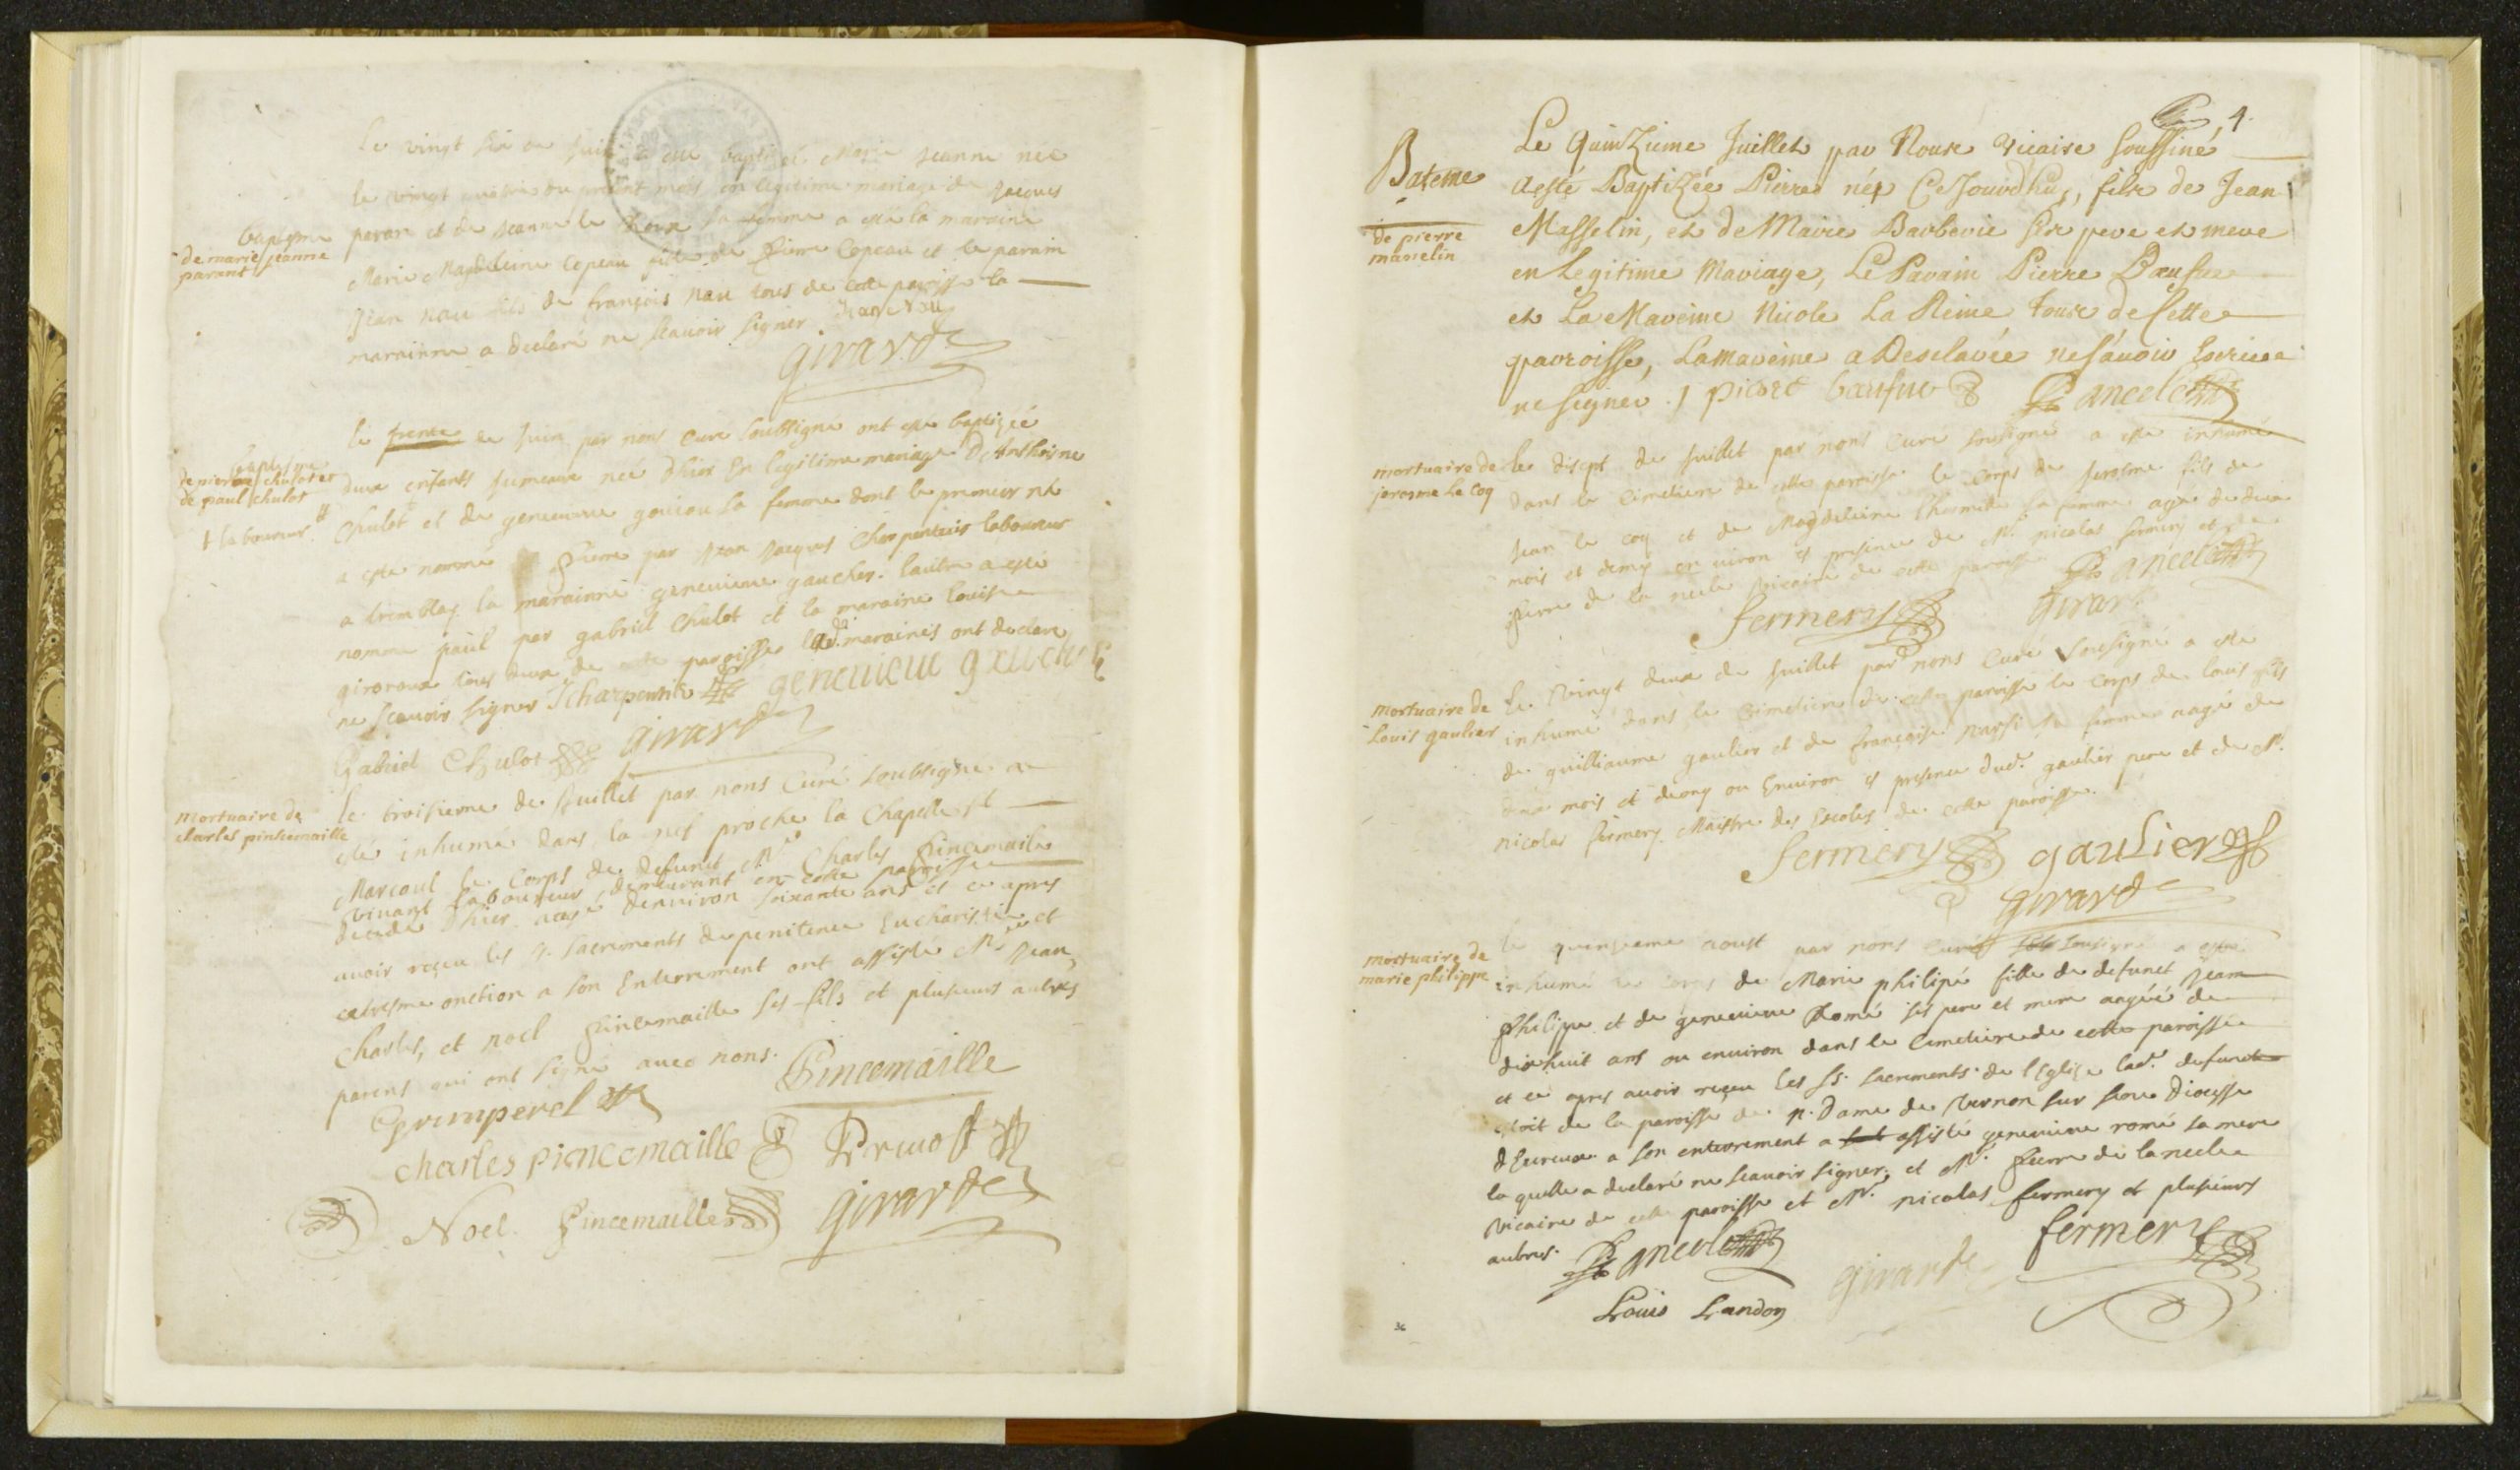 Le vingt six de juin a esté baptisée Marie Jeanne née
le vingt du present mois en legitime mariage de Jacques
baptesme
de marie jeanne
parant
paran et de Jeanne le Roux sa femme a esté la maraine
Marie Magdeleine Copeau fille de Pierre Copeau et le parain
Jean nau fils de françois nau tous de cette paroisse la
marainne a declaré ne scauoir signer Jean Nau
girard
le trente de Juin par nous Curé soubsigné ont esté baptizéé
baptesme
de pierre chulot et
de paul chulot
deux enfants jumeaux néé d'hier En legitime mariage D'Anthoine
+ laboureur
Chulot + et de geneuieue gouiou sa femme dont le premier né
a esté nommé Pierre par Jean Jacques Charpentier laboureur
a tremblay la marainne geneuieue gaucher. lautre a esté
nommé paul par gabriel Chulot et la maraine louise
giroroux tous deux de cette paroisse lesd. maraines ont declaré
ne scauoir signer J charpentie geneuieue gaucher
Gabriel Chulot girard
mortuaire de
charles pinsemaille
le troisieme de Juillet par nous Curé soubsigné a
esté inhumé dans la nef proche la Chapelle st
Marcoul le Corps de defunct Mre Charles Pincemaille
viuant laboureur demeurant en cette paroisse
decedé d'hier aagé denuiron soixante ans et ce apres
auoir reçeu les s. sacrements de penitence Eucharistie et
extresme onction a son Enterrement ont assisté Mre Jean,
Charles, et noel Pincemaille ses fils et plusieurs autres
parens qui ont signé auec nous. Pincemaille
Grimperel
charles pincemaille Pruost
Noel Pincemaille girard
4
Bateme
de pierre
masselin
Le Quinzieme Juillet par Nous vicaire soussiné
Aesté Baptizée Pierre néz Cejourdhuy, fils de Jean
Masselin, et de Marie Barberie ses pere et mere
en Legitime Mariage, Le Parain Pierre Bœufue
et La Mareine Nicole La Reine tous de Cette
parroisse, Lamareine a Desclarée ne sçavoir Escrire
ne signer. / pierre bœufue P ancelet
mortuaire de
jerosme le Coq
le disept de juillet par nous Curé sousigné a esté inhumé
dans le Cimetiere de cette paroisse le Corps de Jerosme fils de
Jean le coq et de Magdeleine lhermite sa femme agé de deux
mois et demy ou enuiron es presence de Mr. nicolas fermery et de
Pierre de la neele vicaire de cette paroisse P ancelet
fermery girard
mortuaire de
Louis gaulier
le Vingt deux de Juillet par nous Curé Sousigné a esté
inhumé dans le Cimetiere de cette paroisse le Corps de louis fils
de guilliaume gaulier et de françoise sa femme aagé de
deux mois et demy ou Enuiron es presence dud. gaulier pere et de Mr.
nicolas fermery Maistre des Escoles de cette paroisse.
fermery gaulier
girard
mortuaire de
marie philippe
le quinzieme aoust par nous Curé sousigné a esté
inhumé le corps de Marie philipe fille de defunct Jean
Philippe et de geneuieue Romé ses pere et mere aagéé de
dixhuit ans ou enuiron dans le Cimetiere de cette paroisse
et ce apres auoir reçeu les ss. sacrements de l'Eglise lad. defuncte
estoit de la paroisse de n. Dame de Vernon sur seine Diocesse
dEureux a son enterrement a assisté geneuieue romé sa mere
la quelle a declaré ne scauoir signer, et Mr. Pierre de la neele
Vicaire de cette paroisse et Mr. nicolas fermery et plusieurs
autres. P ancelet girard fermery
Louis Landon